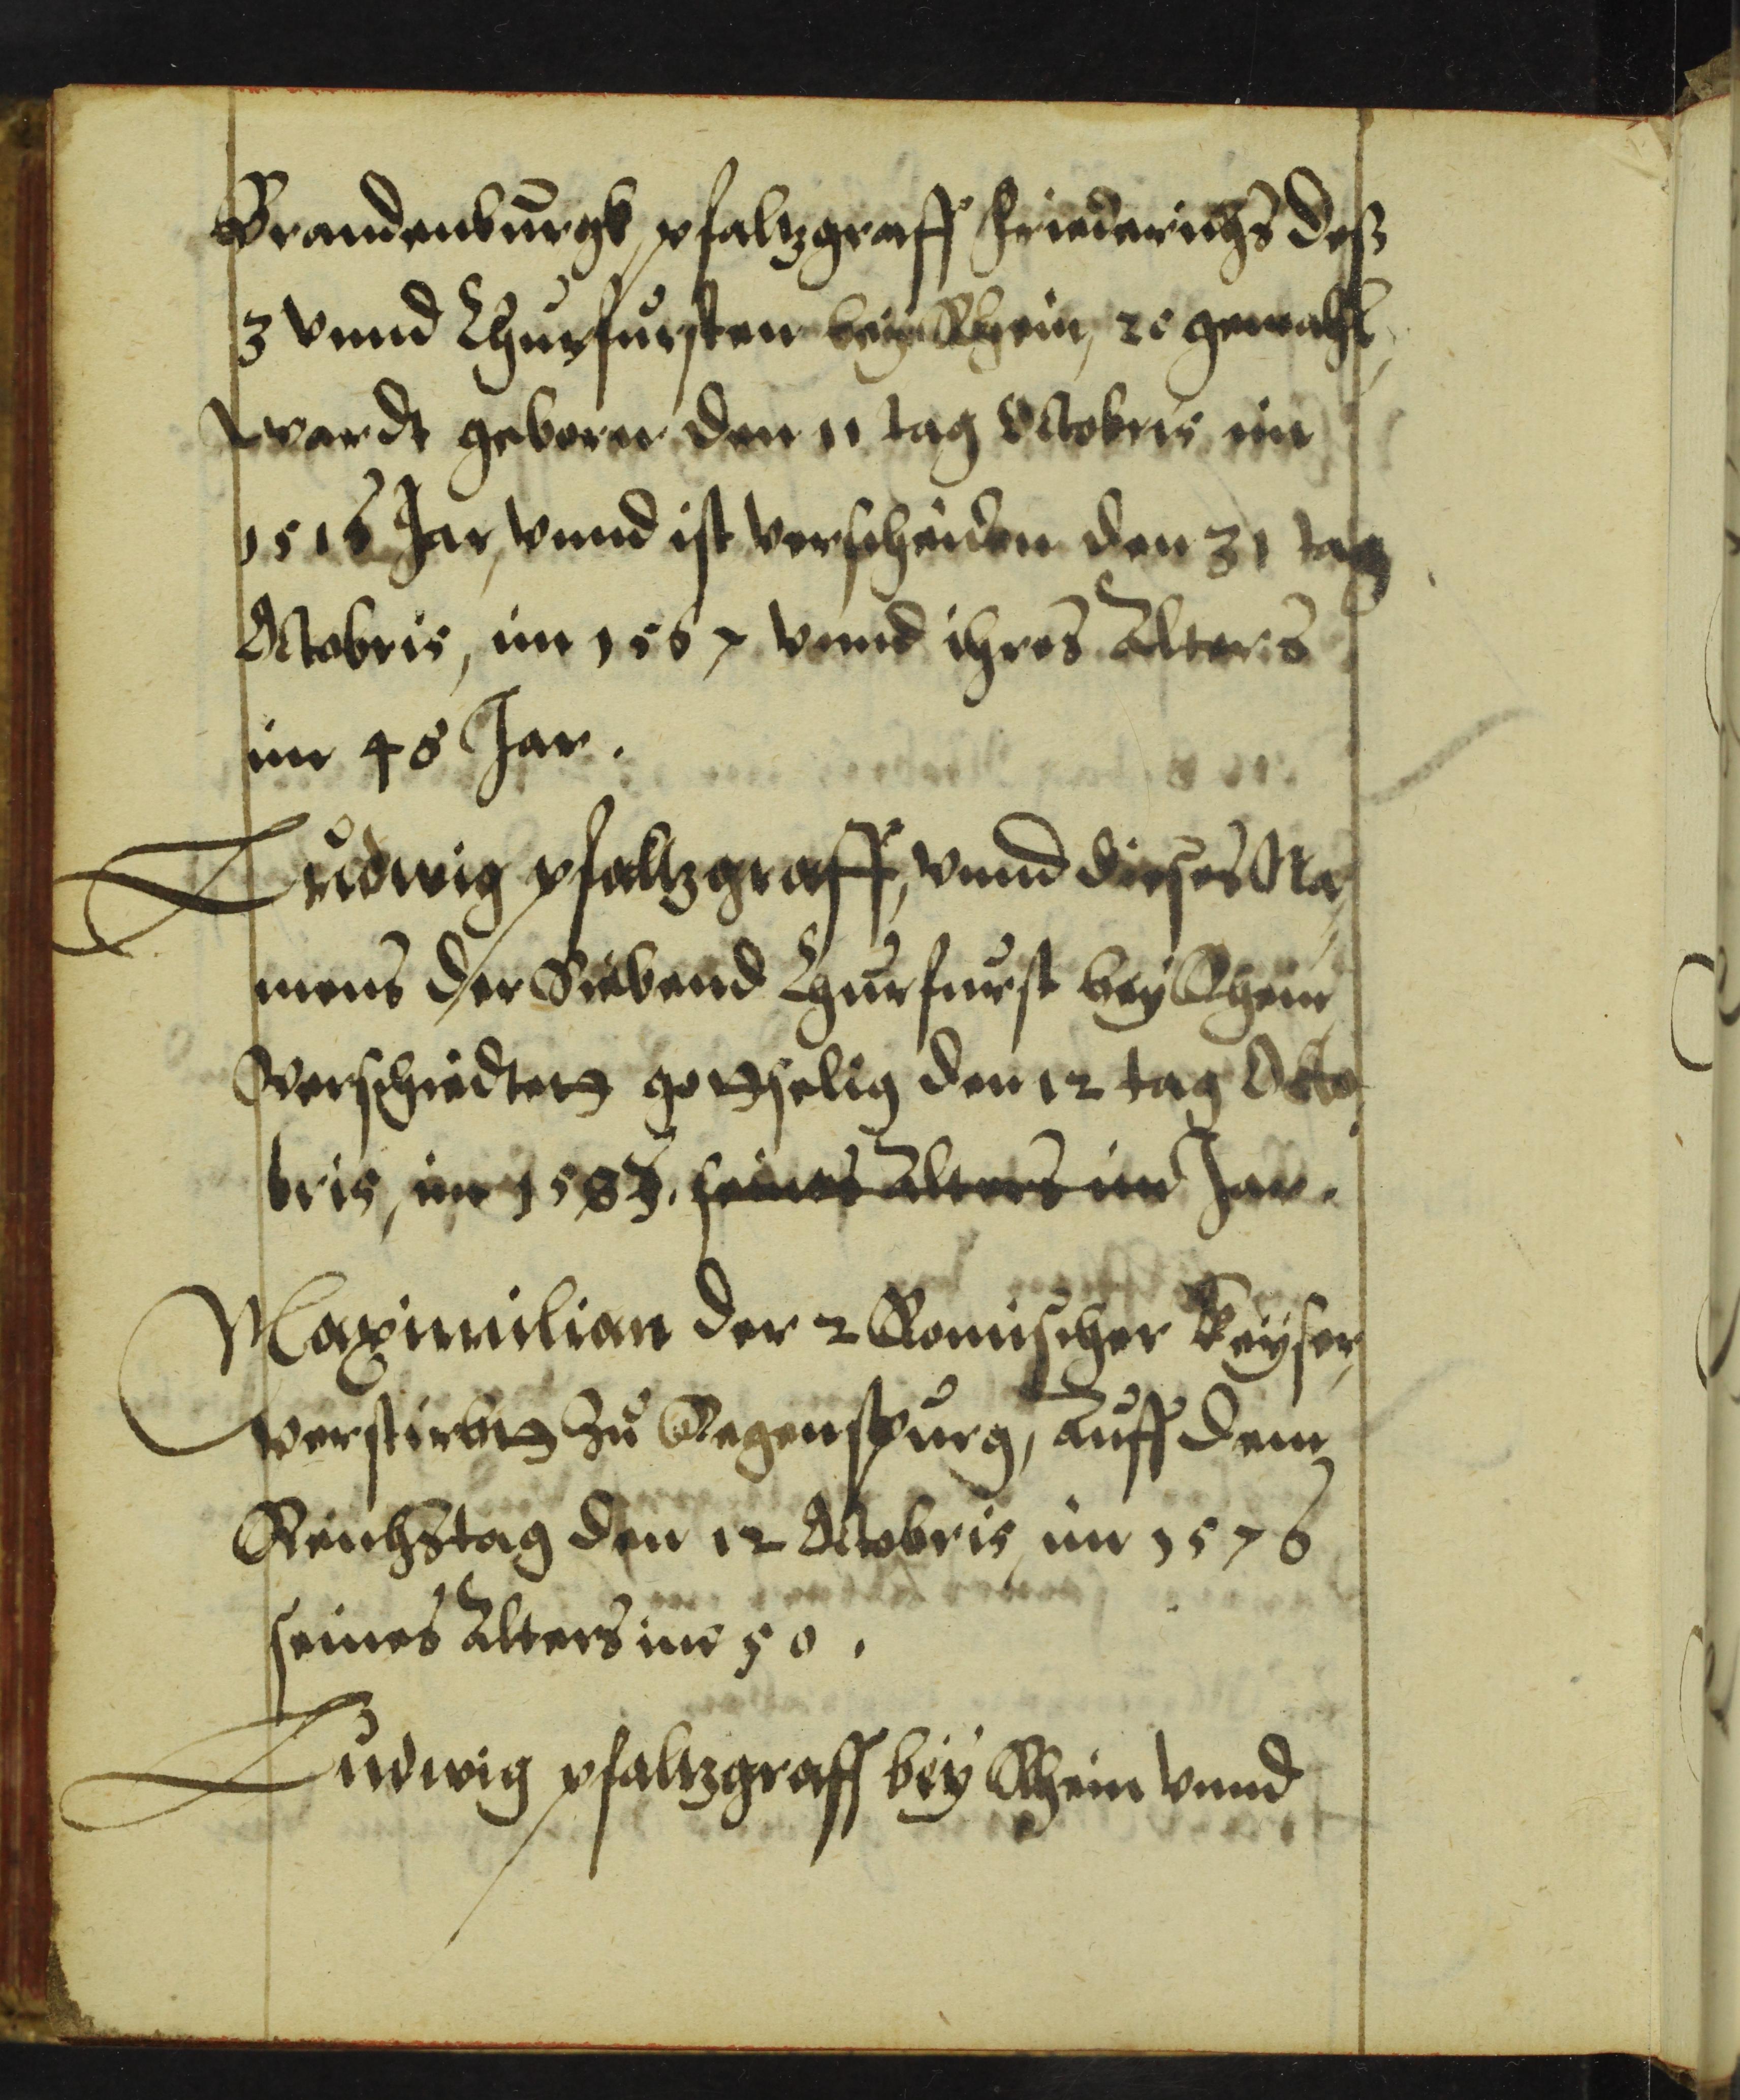 Brandenburgk, pfaltzgraff friederichs deß
3 vnnd Churfursten bey Rhein, 2c gemahl,
wardt geborn den 11 tag Octobris im
1519 Jar, vnnd ist verscheiden den 31 tag
Octobris, im 1567 vnnd ihres Alters
im 48 Jar.
Ludwig pfaltzgraff, vnnd dieses Na,
mens der Siebend Churfurst bey Rhein
Verschiedten gottselig den 12 tag Octo,
bris, im 1583. seines Alters im Jar.
Maximilian der 2 Romischer Keyser,
verstirbtt zu Regenspurg, Auff dem
Reichstag den 12 Octobris im 1576
seines Alters im 50.
Ludwig pfaltzgraff bey Rhein vnnd